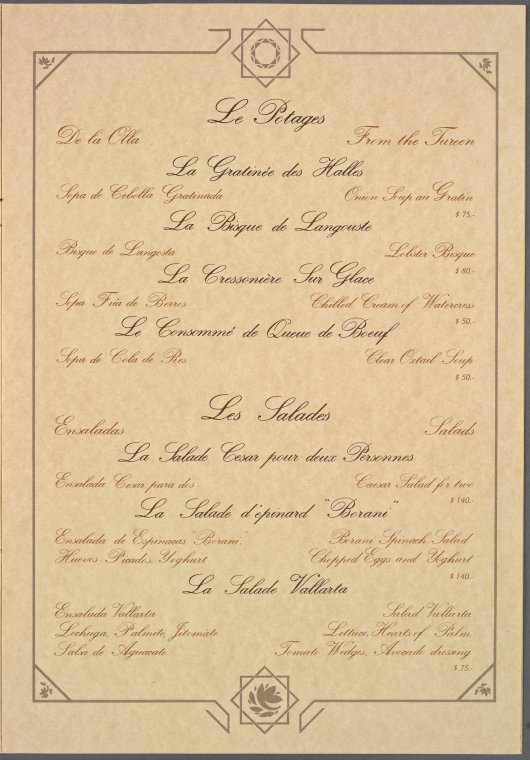 Le Potages
De la Olla From the Tureen
La Gratinée des Halles
Sopa de Cebolla Gratinada Onion Soup au Gratin
$ 75.-
La Bisque de Langouste
Bisque de Langosta Lobster Bisque
$ 80.-
La Cressonière Sur Glace
Sopa Fria de Berros Chilled Cream of Watercress
$ 50.-
Le Consommé de Queue de Boeuf
Sopa de Cola de Res Clear Oxtail Soup
$ 50.-
Les Salades
Ensaladas Salads
La Salade Cesar pour deux Personnes
Ensalada Cesar para dos Caesar Salad for two
$ 140.-
La Salade d'épinard "Borani"
Ensalada de Espinacas "Borani," Borani Spinach Salad
Huevos Picados, Yoghurt Chopped Eggs and Yoghurt
$ 140.-
La Salade Vallarta
Ensalada Vallarta Salad Vallarta
Lechuga, Palmito, Jitomate Lettuce, Hearts of Palm,
Salsa de Aguacate Tomato Wedges, Avocado dressing
$ 75.-